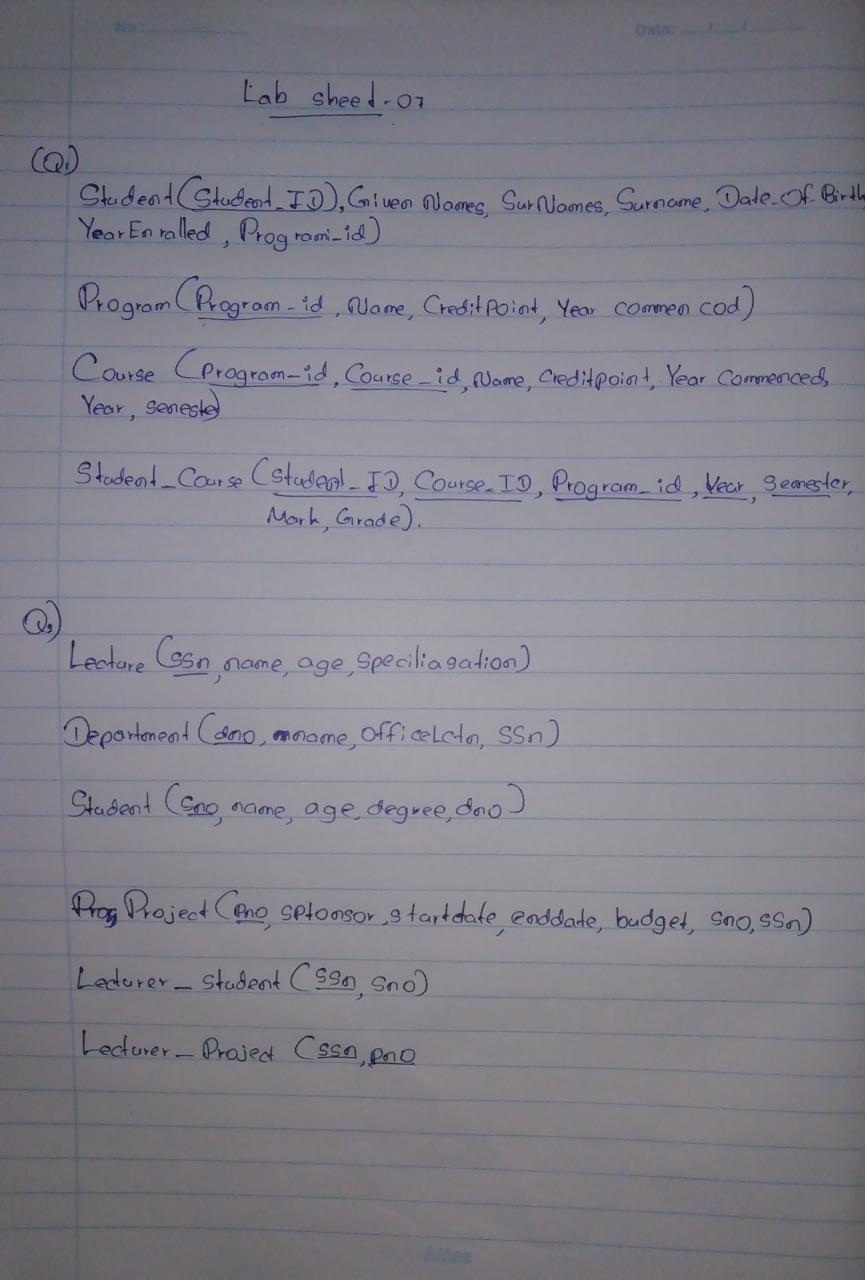 No: Date:
Lab sheet-07
(Q1)
Student(Student_ID), Given Names, SurNames, Surname, Date-Of-Birth
YearEnralled, Program-id)
Program (Program-id, Name, CreditPoint, Year commen cod)
Course (Program-id, Course-id, Name, Creditpoint, Year Commenced,
Year, semester)
Student_Course (Student_ID, Course-ID, Program_id, Year, Semester,
Mark, Grade).
Q2)
Lecture (ssn, name, age, speciliagation)
Department (dno, name, OfficeLctn, SSn)
Student (Sno, name, age, degree, dno)
Prog Project (Pno, sptonsor, startdate, enddate, budget, sno, ssn)
Lecturer_Student (SSn, Sno)
Lecturer-Project (SSn, pno
Atlas